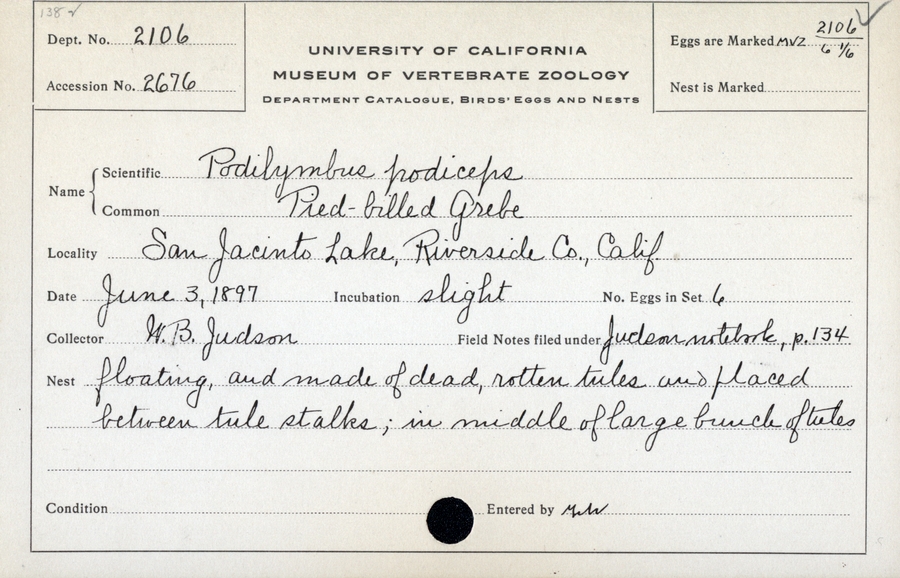 138
Dept. No. 2106
Accession No. 2676
UNIVERSITY OF CALIFORNIA
MUSEUM OF VERTEBRATE ZOOLOGY
DEPARTMENT CATALOGUE, BIRDS' EGGS AND NESTS
Eggs are Marked MVZ 2106
6 1/6
Nest is Marked
Name
Scientific Podilymbus podiceps
Common Pied-billed Grebe
Locality San Jacinto Lake, Riverside Co., Calif.
Date June 3, 1897 Incubation slight No. Eggs in Set 6
Collector W. B. Judson Field Notes filed under Judson notebook, p. 134
Nest floating, and made of dead, rotten tules and placed
between tule stalks; in middle of large bunch of tules
Condition Entered by